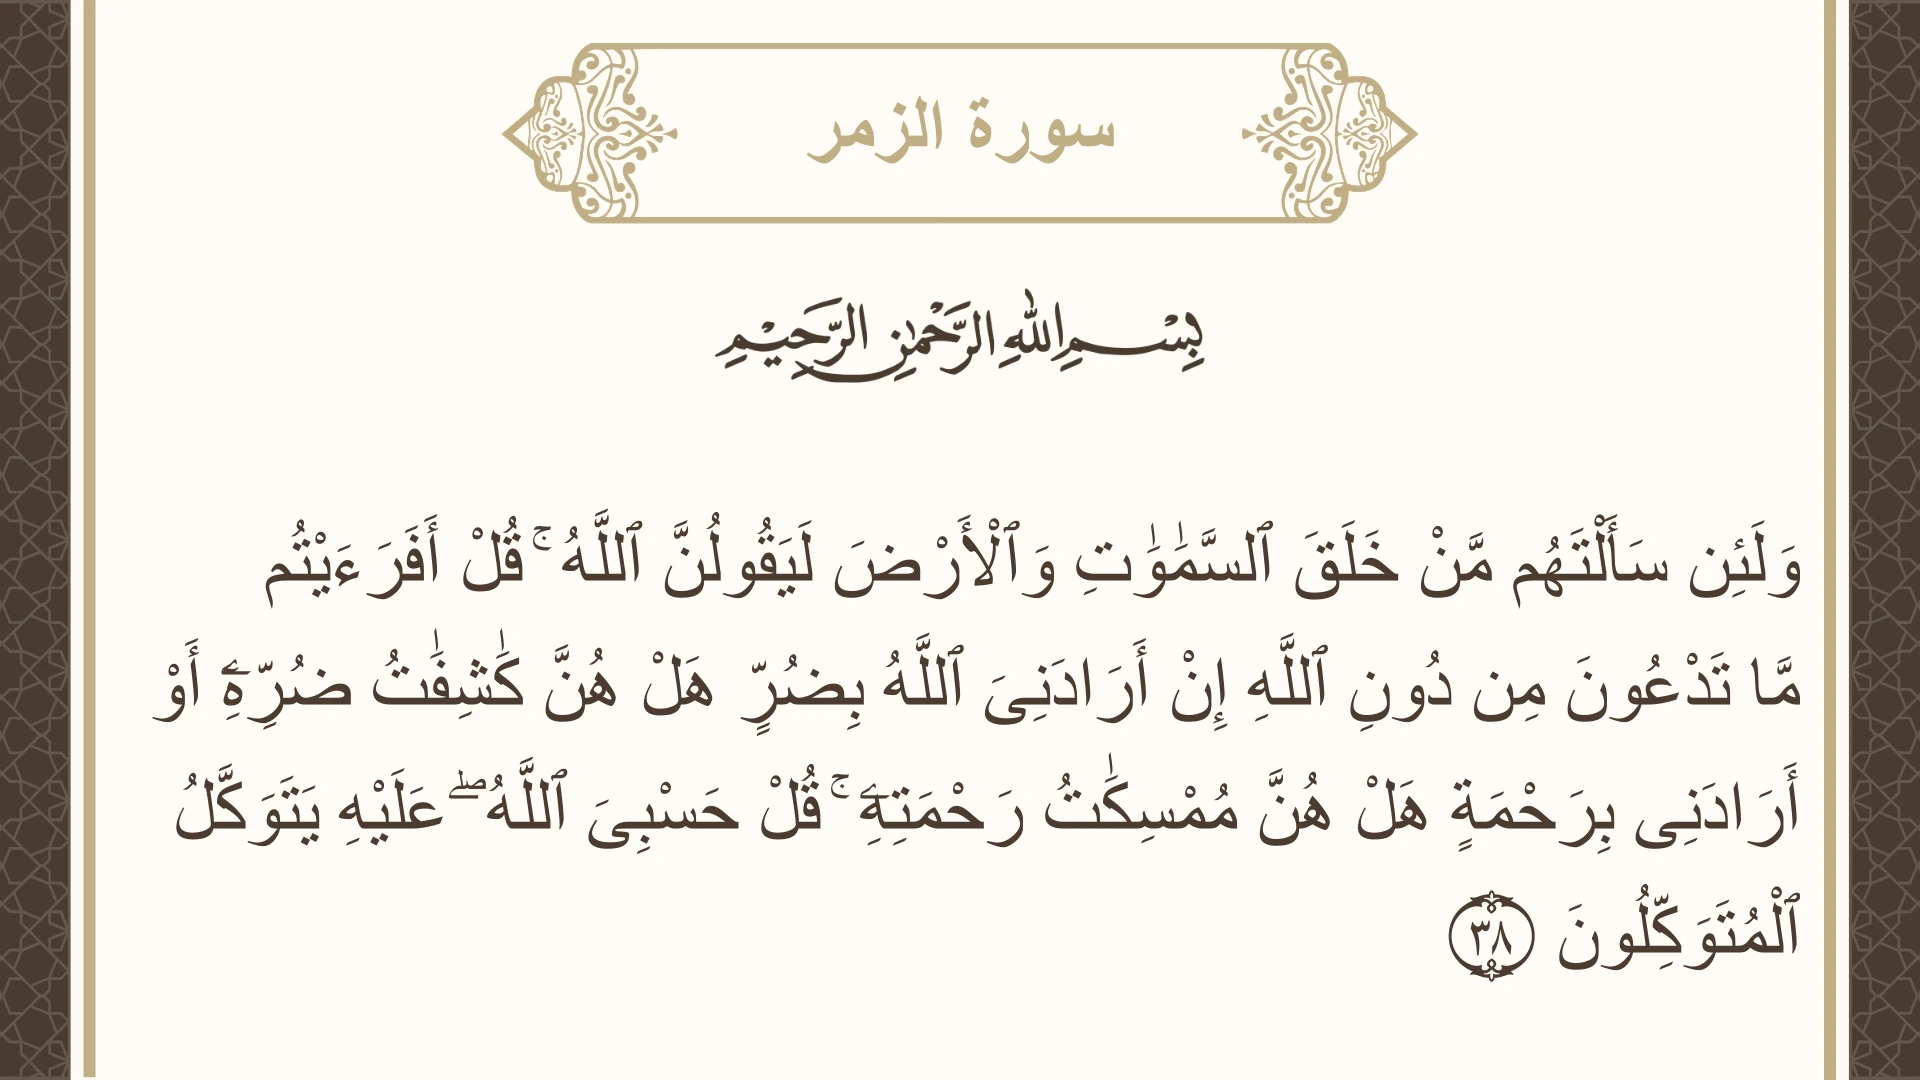 سورة الزمر
بِسْمِ اللهِ الرَّحْمٰنِ الرَّحِيْمِ
وَلَئِن سَأَلْتَهُم مَّنْ خَلَقَ ٱلسَّمَٰوَٰتِ وَٱلْأَرْضَ لَيَقُولُنَّ ٱللَّهُ ۚ قُلْ أَفَرَءَيْتُم
مَّا تَدْعُونَ مِن دُونِ ٱللَّهِ إِنْ أَرَادَنِىَ ٱللَّهُ بِضُرٍّ هَلْ هُنَّ كَٰشِفَٰتُ ضُرِّهِۦٓ أَوْ
أَرَادَنِى بِرَحْمَةٍ هَلْ هُنَّ مُمْسِكَٰتُ رَحْمَتِهِۦ ۚ قُلْ حَسْبِىَ ٱللَّهُ ۖ عَلَيْهِ يَتَوَكَّلُ
ٱلْمُتَوَكِّلُونَ ٣٨